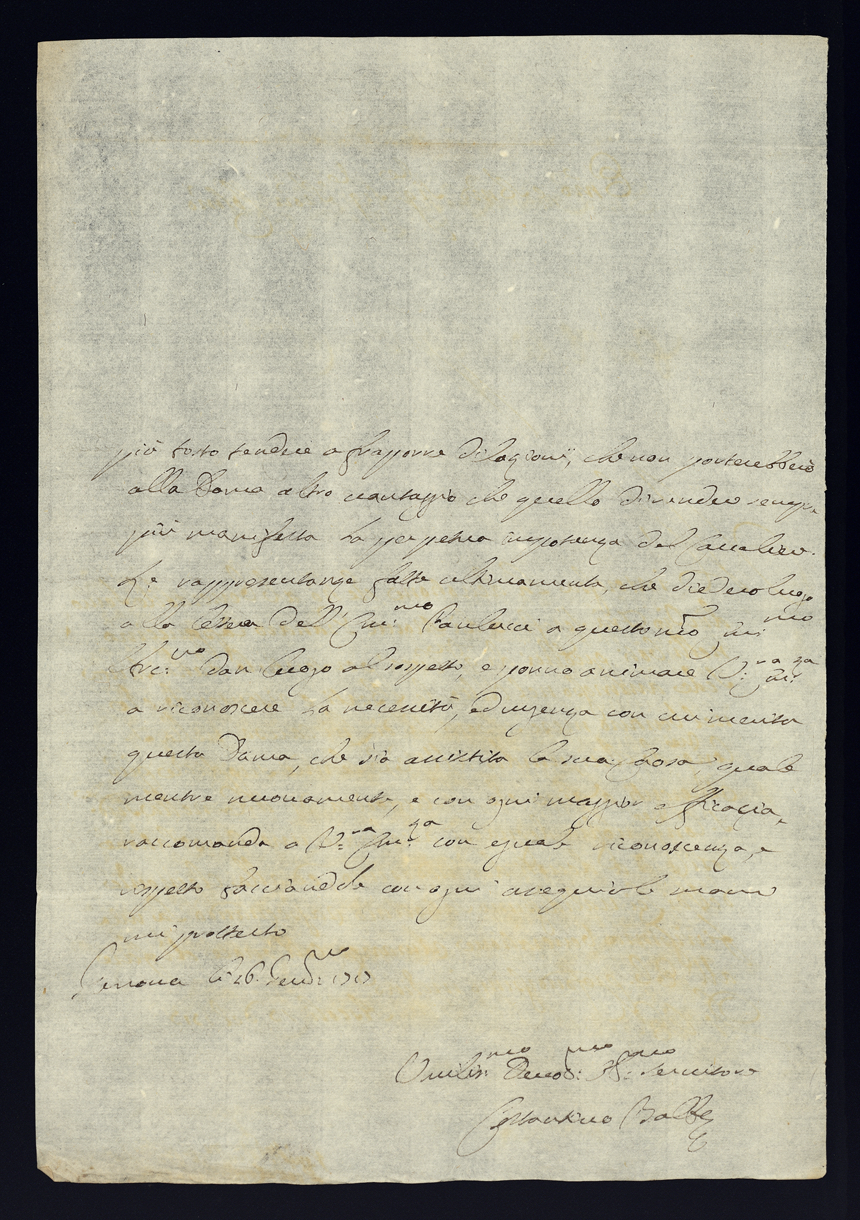 più tosto tendere a frapporre dilazioni, che non porterebbero
alla Dama altro vantaggio che quello di render sempre
più manifesta la perpetua impotenza del Cavaliere.
Le rappresentanze fatte ultimamente, che diedero luogo
alla lettera dell' Em:mo Paulucci a questo mio
dan luogo al rispetto, e ponno animare V:ra Em:za
a riconoscere la necessità, ed urgenza con cui merita
questa Dama, che sia assistita la sua causa, quale
mentre nuovamente, e con ogni maggior efficacia,
raccomando a V:ra Em:za con eguale riconoscenza, e
rispetto facciandole con ogni ossequiosle
mi protesto
Genova li 26. Genn:ro 1717
Umilis:mo Devo:mo Obl:mo Servitore
Costantino Balbi